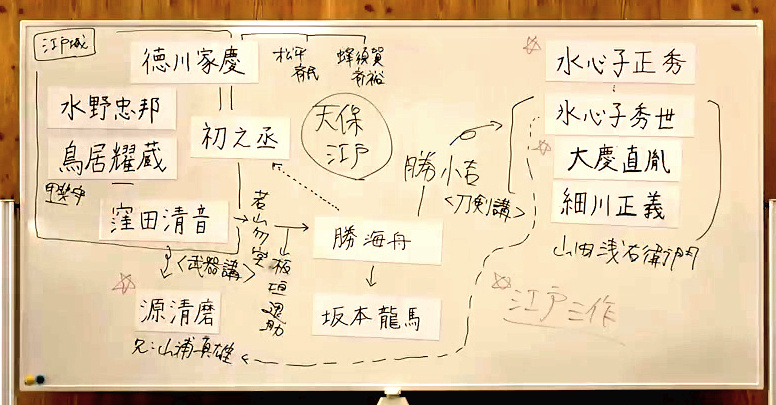 江戸城
徳川家慶
松平
斉民
蜂須賀
斉裕
水野忠邦
鳥居耀蔵
甲斐守
初之丞
天保
江戸
窪田清音
<武器講>
若山勿堂
板垣退助
源清磨
兄:山浦真雄
勝小吉
<刀剣講>
勝海舟
坂本龍馬
水心子正秀
水心子秀世
大慶直胤
細川正義
山田浅右衛門
江戸三作